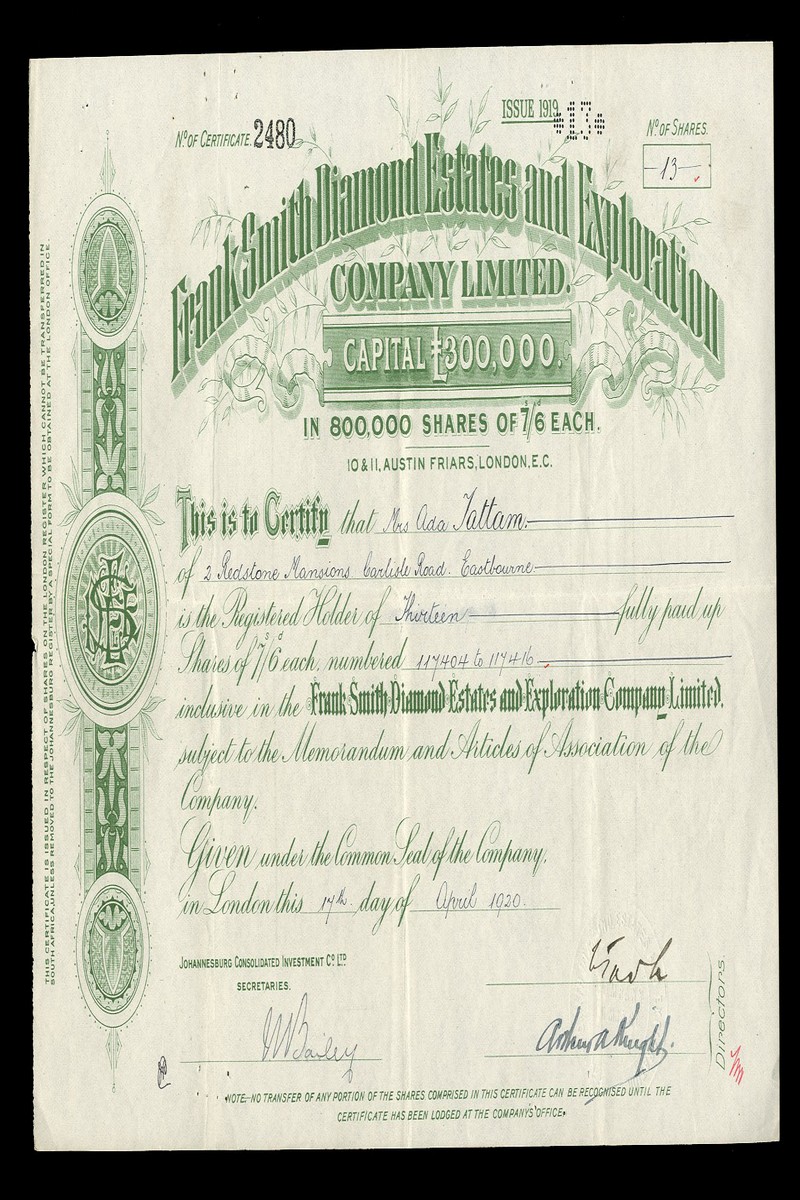 ISSUE 1919
Nº OF CERTIFICATE. 2480
Nº OF SHARES.
13
Frank Smith Diamond Estates and Exploration
COMPANY LIMITED.
CAPITAL £300,000.
IN 800,000 SHARES OF 7/6 EACH.
10 & 11, AUSTIN FRIARS, LONDON, E.C.
This is to Certify that Mrs Ada Tattam.
of 2 Redstone Mansions Carlisle Road. Eastbourne
is the Registered Holder of Thirteen fully paid up
Shares of 7s/6d each, numbered 117404 to 117416
inclusive in the Frank Smith Diamond Estates and Exploration Company Limited.
subject to the Memorandum and Articles of Association of the
Company.
Given under the Common Seal of the Company,
in London this 17th day of April 1920.
JOHANNESBURG CONSOLIDATED INVESTMENT Cº LTD
SECRETARIES.
Bailey
Arthur A Knight.
Directors.
NOTE.—NO TRANSFER OF ANY PORTION OF THE SHARES COMPRISED IN THIS CERTIFICATE CAN BE RECOGNISED UNTIL THE
CERTIFICATE HAS BEEN LODGED AT THE COMPANY'S OFFICE.
THIS CERTIFICATE IS ISSUED IN RESPECT OF SHARES ON THE LONDON REGISTER WHICH CANNOT BE TRANSFERRED IN
SOUTH AFRICA UNLESS REMOVED TO THE JOHANNESBURG REGISTER BY A SPECIAL FORM TO BE OBTAINED AT THE LONDON OFFICE.